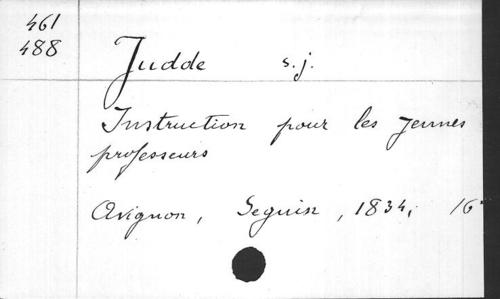 461
488
Judde s.j.
Instruction pour les jeunes
professeurs
Avignon, Seguin, 1834, 16°